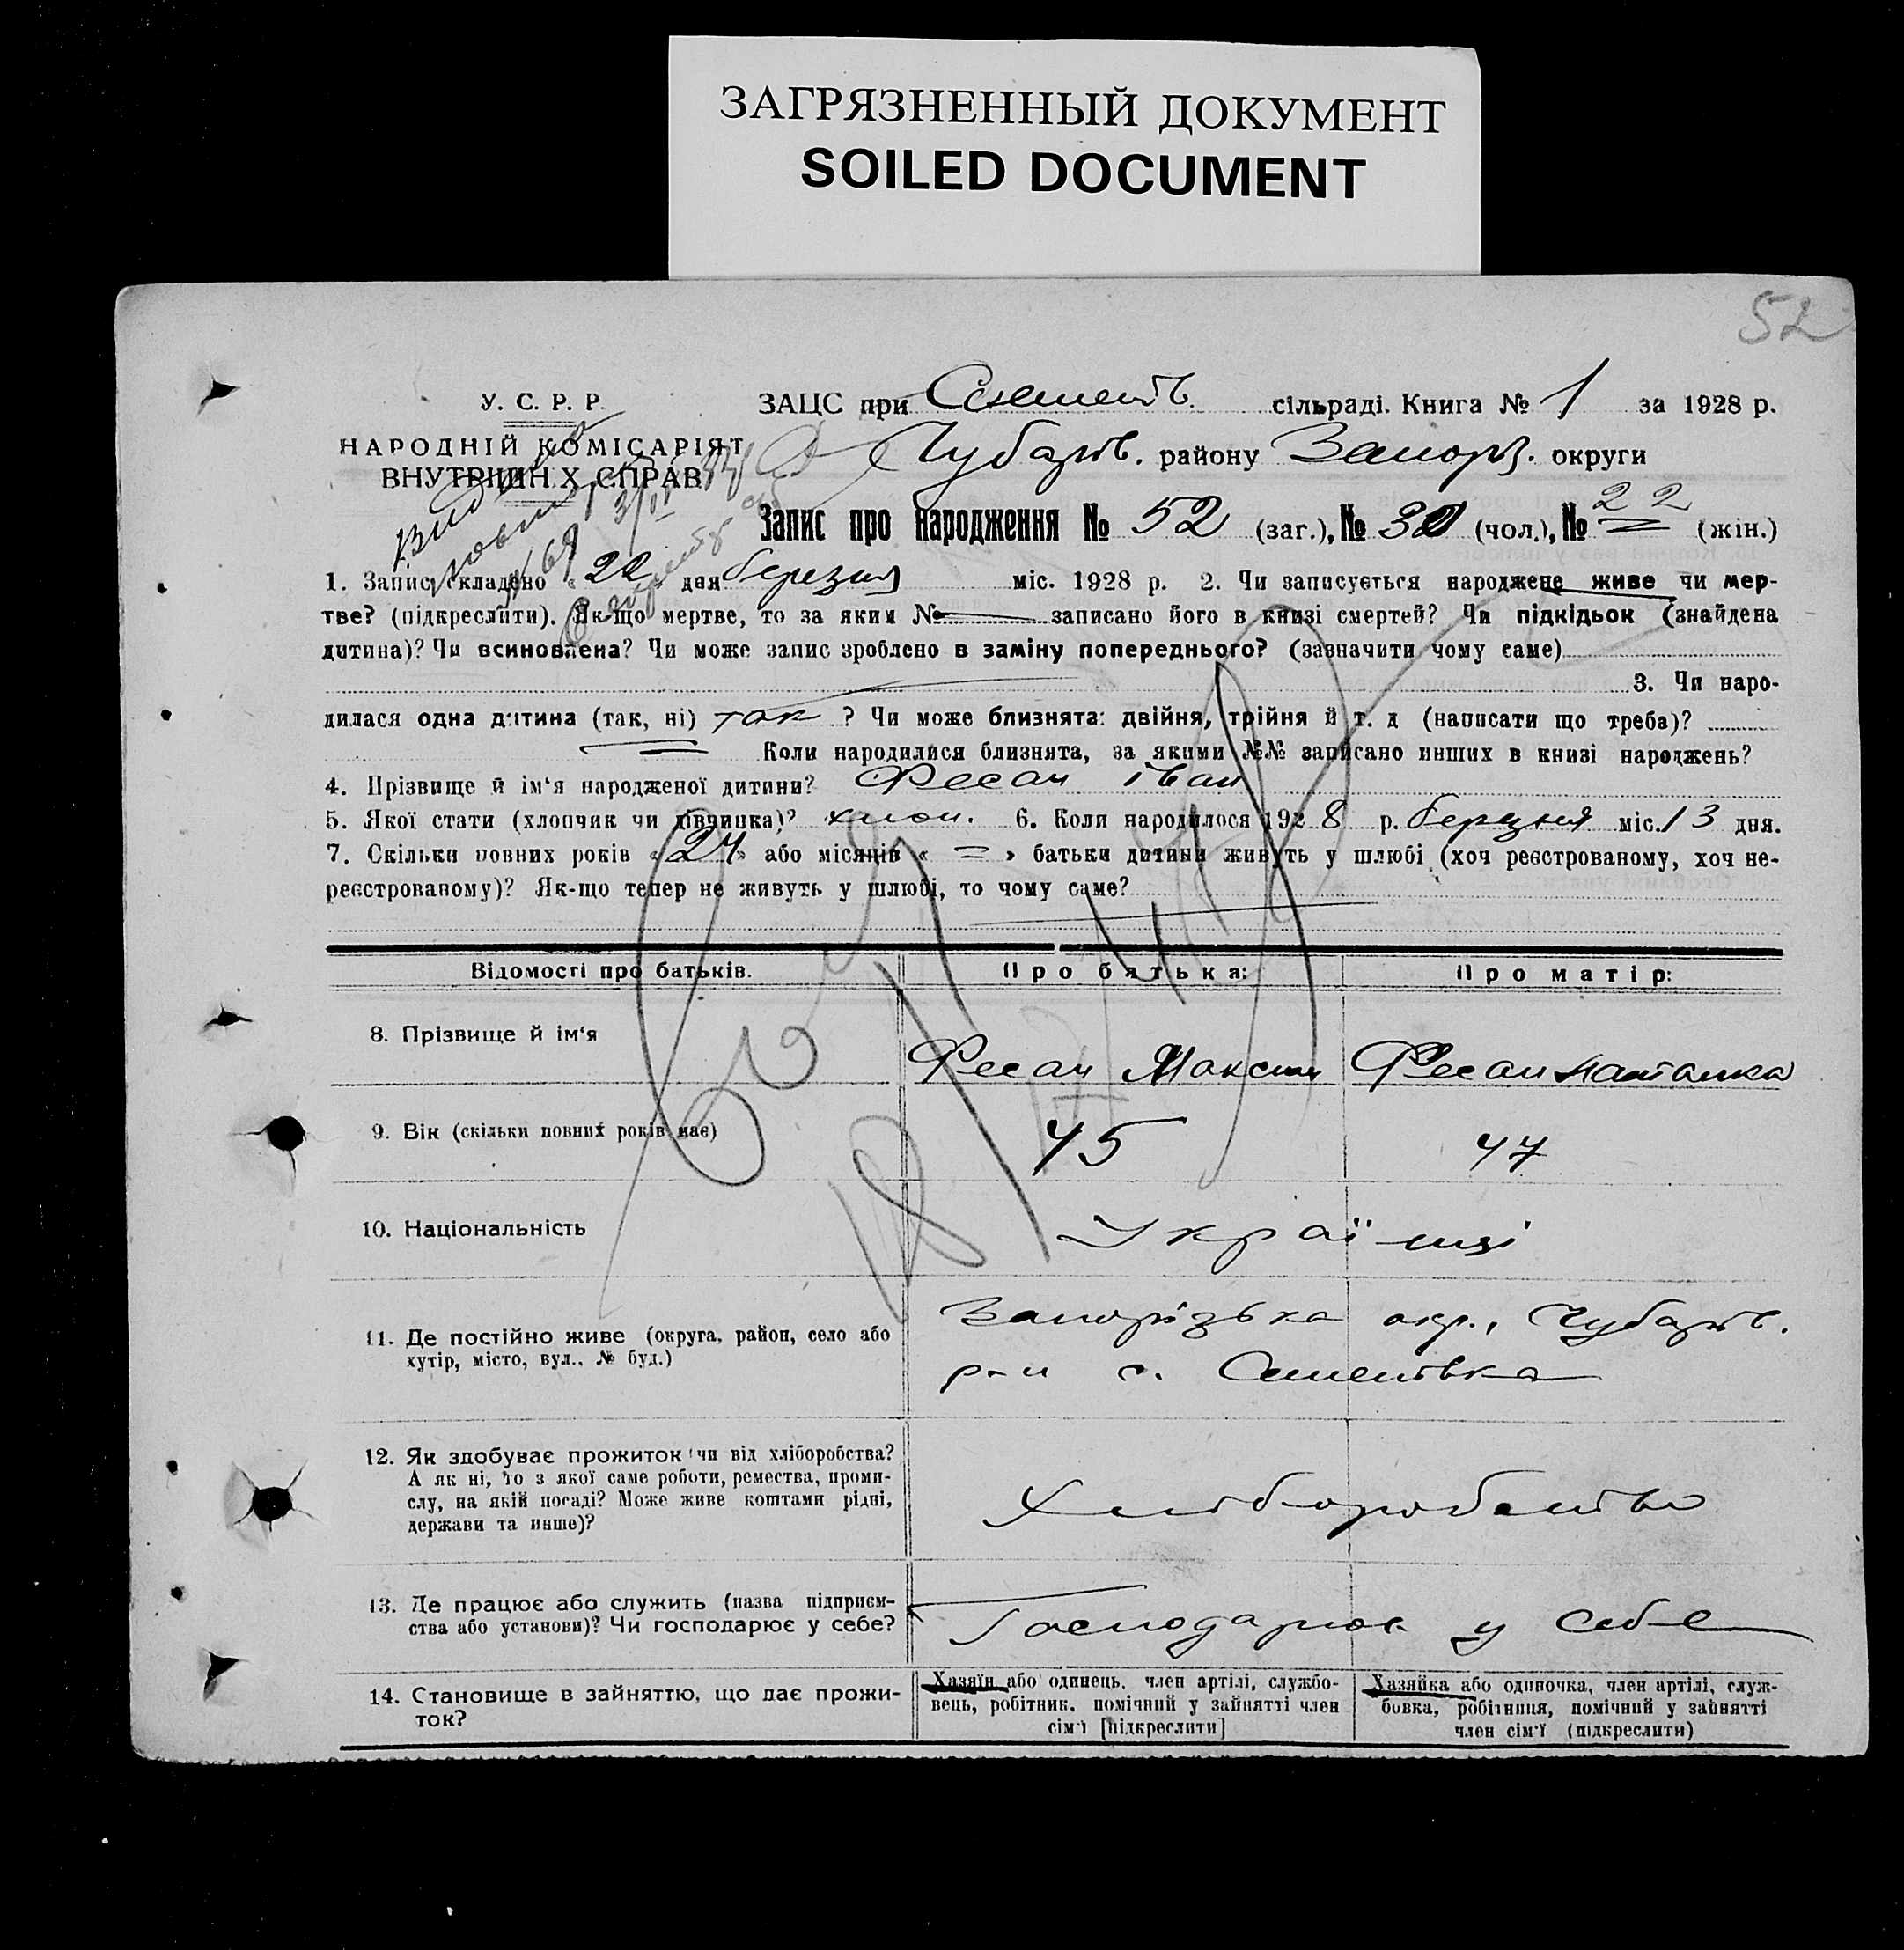 ЗАГРЯЗНЕННЫЙ ДОКУМЕНТ
SOILED DOCUMENT
52
У. С. Р. Р.
НАРОДНІЙ КОМІСАРІЯТ
ВНУТРІШН.Х СПРАВ
ЗАЦС при Семенів. сільраді. Книга № 1 за 1928 р.
Чубарів. району Запоріз. округи
Запис про народження № 52 (заг.), № 30 (чол.), № 22 (жін.)
1. Запис складено «20» дня березня міс. 1928 р. 2. Чи записується народжене живе чи мер-
тве? (підкреслити). Як-що мертве, то за яким № — записано його в книзі смертей? Чи підкідьок (знайдена
дитина)? Чи всиновлена? Чи може запис зроблено в заміну попереднього? (зазначити чому саме)
3. Чи наро-
дилася одна дитина (так, ні) так ? Чи може близнята: двійня, трійня й т. д (написати що треба)?
Коли народилися близнята, за якими №№ записано инших в книзі народжень?
4. Прізвище й ім'я народженої дитини? Фесан Іван
5. Якої стати (хлопчик чи дівчинка)? хлоп. 6. Коли народилося 1928 р. березня міс. 13 дня.
7. Скільки повних років «24» або місяців « = » батьки дитини живуть у шлюбі (хоч реєстрованому, хоч не-
реєстрованому)? Як-що тепер не живуть у шлюбі, то чому саме?
Відомості про батьків. Про батька: Про матір:
8. Прізвище й ім'я Фесан Максим Фесан Наталка
9. Вік (скільки повних років має) 45 47
10. Національність Українці
11. Де постійно живе (округа, район, село або
хутір, місто, вул., № буд.)
Запорізька окр., Чубарів.
р-н с. Семенівка
12. Як здобуває прожиток чи від хліборобства?
А як ні, то з якої саме роботи, ремества, проми-
слу, на якій посаді? Може живе коштами рідні,
держави та инше)?
Хліборобство
13. Де працює або служить (назва підприєм-
ства або установи)? Чи господарює у себе?
Господарює у себе
14. Становище в зайняттю, що дає прожи-
ток?
Хазяїн або одинець, член артілі, службо-
вець, робітник, помічний у зайнятті член
сім'ї [підкреслити]
Хазяйка або одиночка, член артілі, служ-
бовка, робітниця, помічний у зайнятті
член сім'ї (підкреслити)